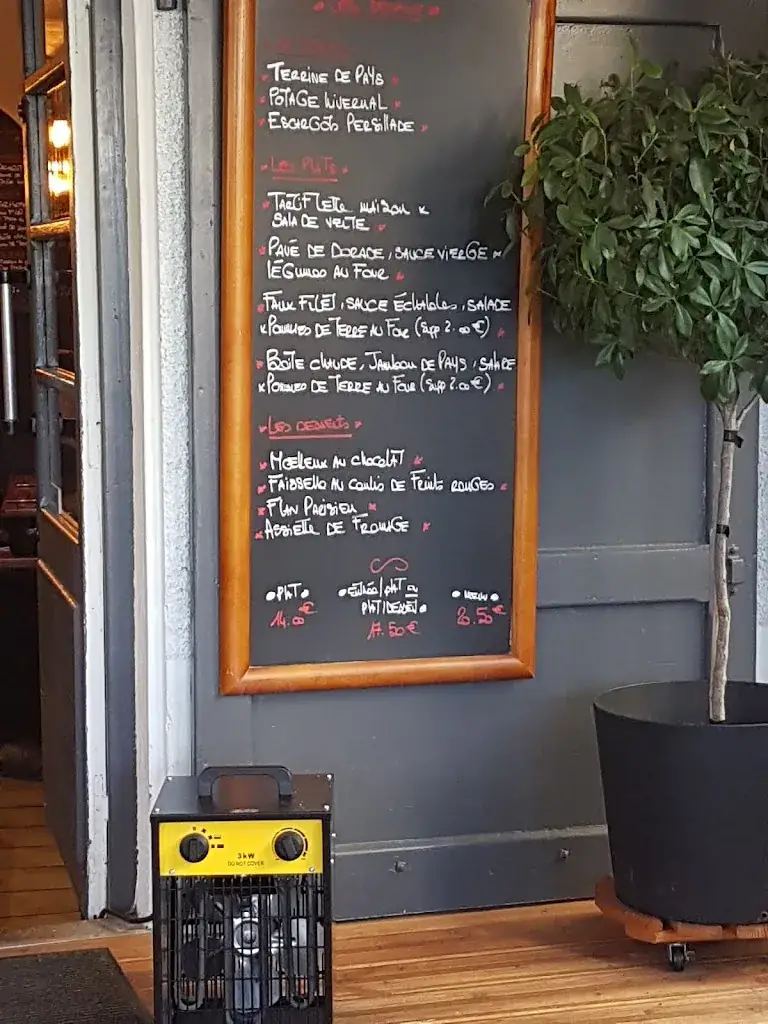 Terrine de Pays
Potage Hivernal
Escargots Persillade
Les Plats
Tartiflette maison
Salade verte
Pavé de Dorade, sauce vierge
Légumes au Four
Faux Filet, sauce Échalotes, salade
Pommes de Terre au Four (Supp 2.00€)
Boîte chaude, Jambon de Pays, salade
Pommes de Terre au Four (Supp 2.00€)
Les Desserts
Moelleux au chocolat
Faisselle au coulis de Fruits rouges
Flan Parisien
Assiette de Fromage
Plat
14.00€
Entrée/plat ou
Plat/Dessert
17.50€
Menu
20.50€
3kW
DO NOT COVER